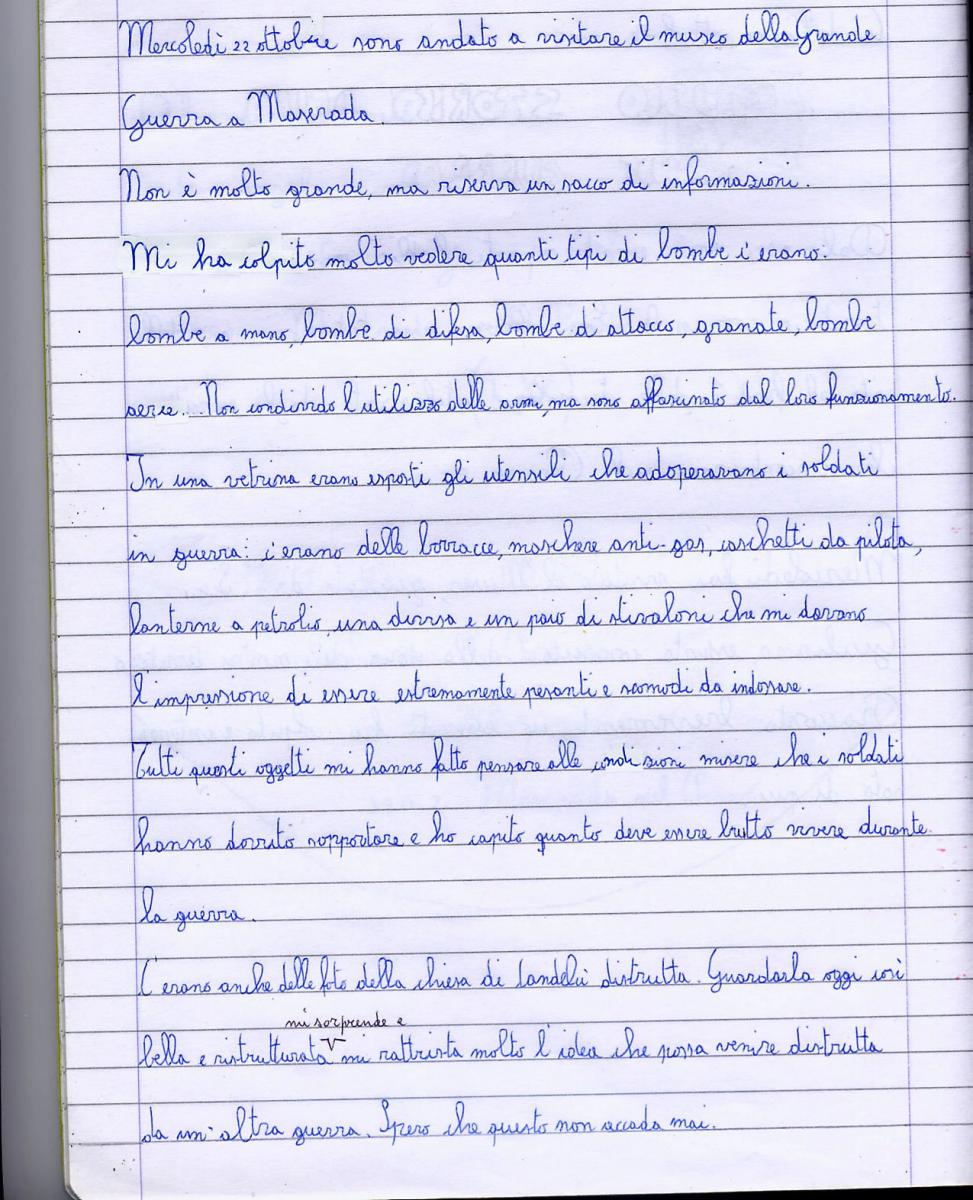 Mercoledì 22 ottobre sono andato a visitare il museo della Grande
Guerra a Maserada.
Non è molto grande, ma riserva un sacco di informazioni.
Mi ha colpito molto vedere quanti tipi di bombe c'erano:
bombe a mano, bombe di difesa, bombe d'attacco, granate, bombe
aeree... Non condivido l'utilizzo delle armi, ma sono affascinato dal loro funzionamento.
In una vetrina erano esposti gli utensili che adoperavano i soldati
in guerra: c'erano delle borracce, maschere anti-gas, caschetti da pilota,
lanterne a petrolio, una divisa e un paio di stivaloni che mi davano
l'impressione di essere estremamente pesanti e scomodi da indossare.
Tutti questi oggetti mi hanno fatto pensare alle condizioni misere che i soldati
hanno dovuto sopportare e ho capito quanto deve essere brutto vivere durante
la guerra.
C'erano anche delle foto della chiesa di Candelù distrutta. Guardarla oggi così
mi sorprende e
bella e ristrutturata mi rattrista molto l'idea che possa venire distrutta
da un'altra guerra. Spero che questo non accada mai.